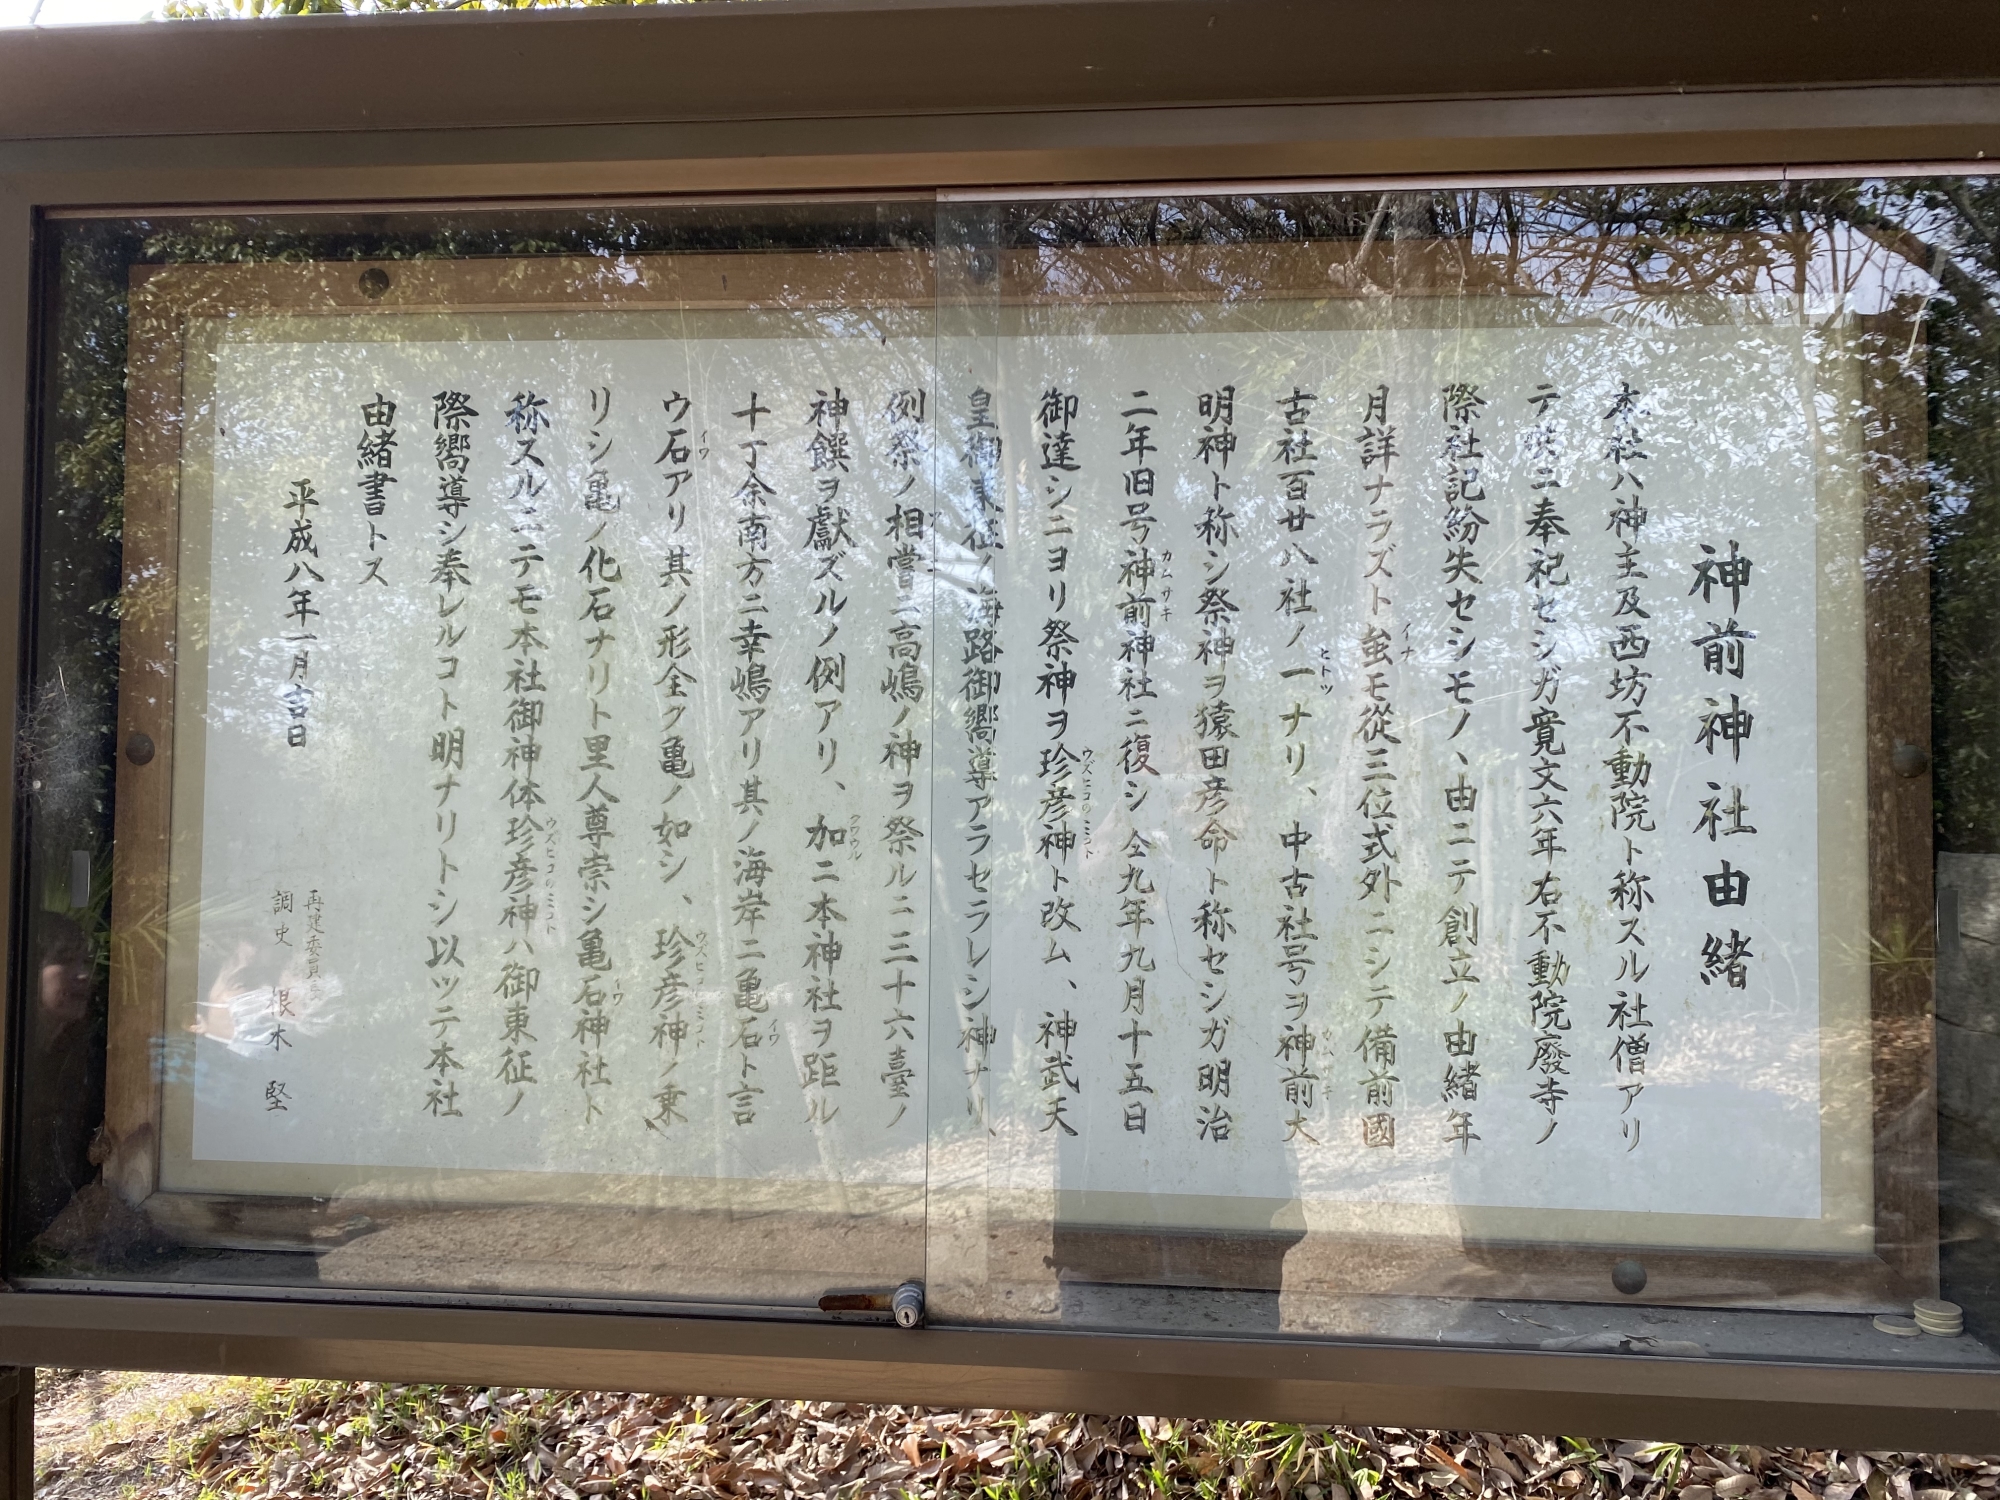 神前神社由緒
本社ハ神主及西坊不動院ト称スル社僧アリ
テ供ニ奉祀セシガ寛文六年右不動院廢寺ノ
際社記紛失セシモノ、由ニテ創立ノ由緒年
月詳ナラズト蛍モ從三位式外ニシテ備前國
古社百廿八社ノ一ナリ、中古社号ヲ神前大
明神ト称シ祭神ヲ猿田彦命ト称セシガ明治
二年旧号神前神社ニ復シ仝九年九月十五日
御達シニヨリ祭神ヲ珍彦神ト改ム、神武天
皇御東征ノ海路御嚮導アラセラレシ神ナリ、
例祭ノ相嘗ニ高嶋ノ神ヲ祭ルニ三十六臺ノ
神饌ヲ獻ズルノ例アリ、加ニ本神社ヲ距ル
十丁余南方ニ幸嶋アリ其ノ海岸ニ亀石ト言
ウ石アリ其ノ形全ク亀ノ如シ、珍彦神ノ乗
リシ亀ノ化石ナリト里人尊崇シ亀石神社ト
称スルニテモ本社御神体珍彦神ハ御東征ノ
際嚮導シ奉レルコト明ナリトシ以ッテ本社
由緒書トス
平成八年一月吉日
再建委員長
調史 根木 堅